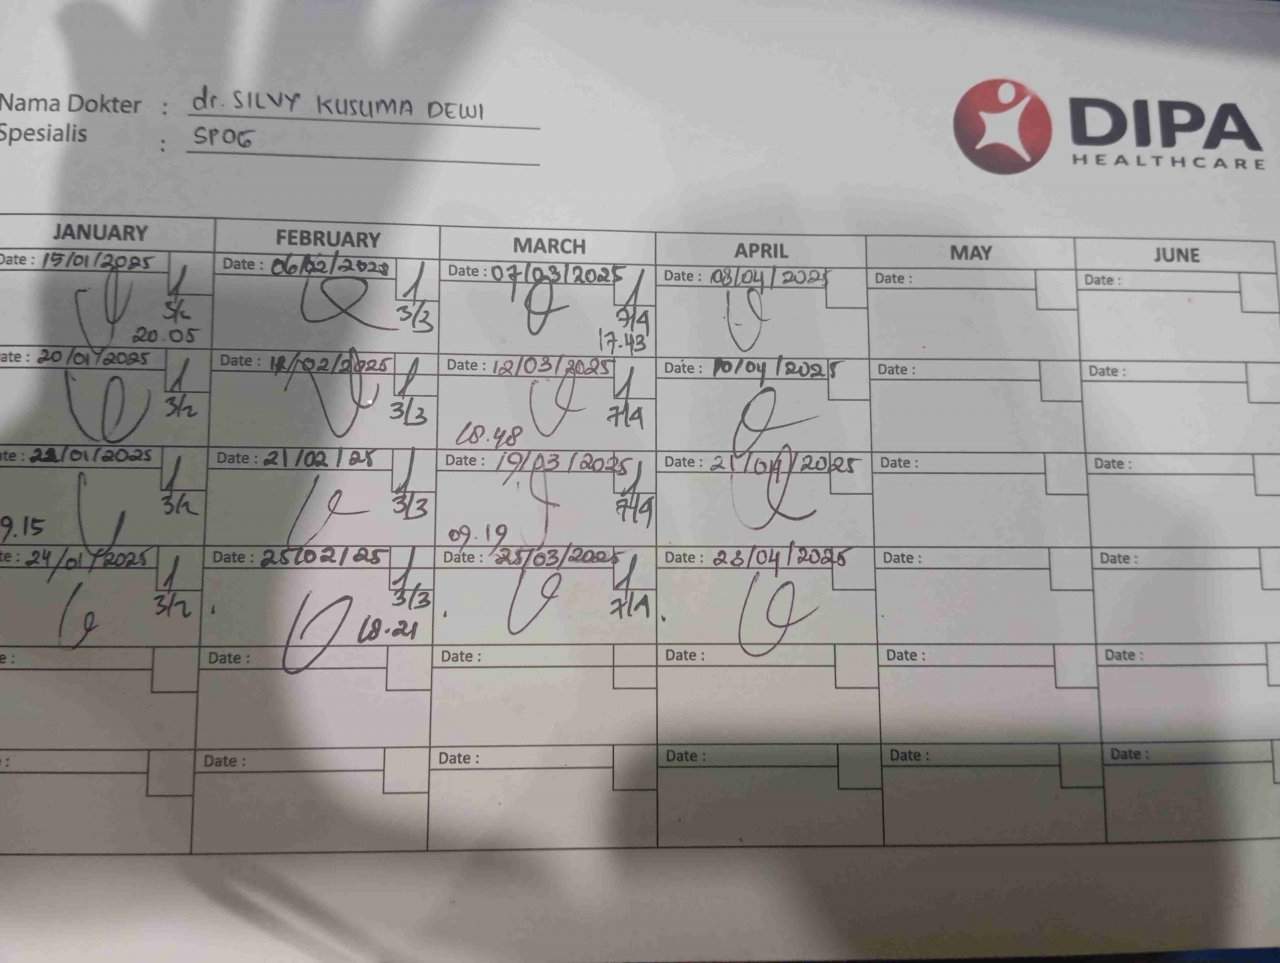 Nama Dokter : dr. SILVY KUSUMA DEWI
Spesialis : SPOG
DIPA
HEALTHCARE
JANUARY FEBRUARY MARCH APRIL MAY JUNE
Date : 15/01/2025 Date : 06/02/2025 Date : 07/03/2025 Date : 08/04/2025 Date : Date :
5/2 3/3 7/4
20.05 17.43
ate : 20/01/2025 Date : /02/2025 Date : 12/03/2025 Date : 10/04/2025 Date : Date :
3/2 3/3 7/4
18.48
te : 22/01/2025 Date : 21/02/25 Date : 19/03/2025 Date : 21/04/2025 Date : Date :
3/2 3/3 7/4
9.15 09.19
e : 24/01/2025 Date : 25/02/25 Date : 25/03/2025 Date : 23/04/2025 Date : Date :
3/2 3/3 7/4
18.21
e : Date : Date : Date : Date : Date :
: Date : Date : Date : Date : Date :